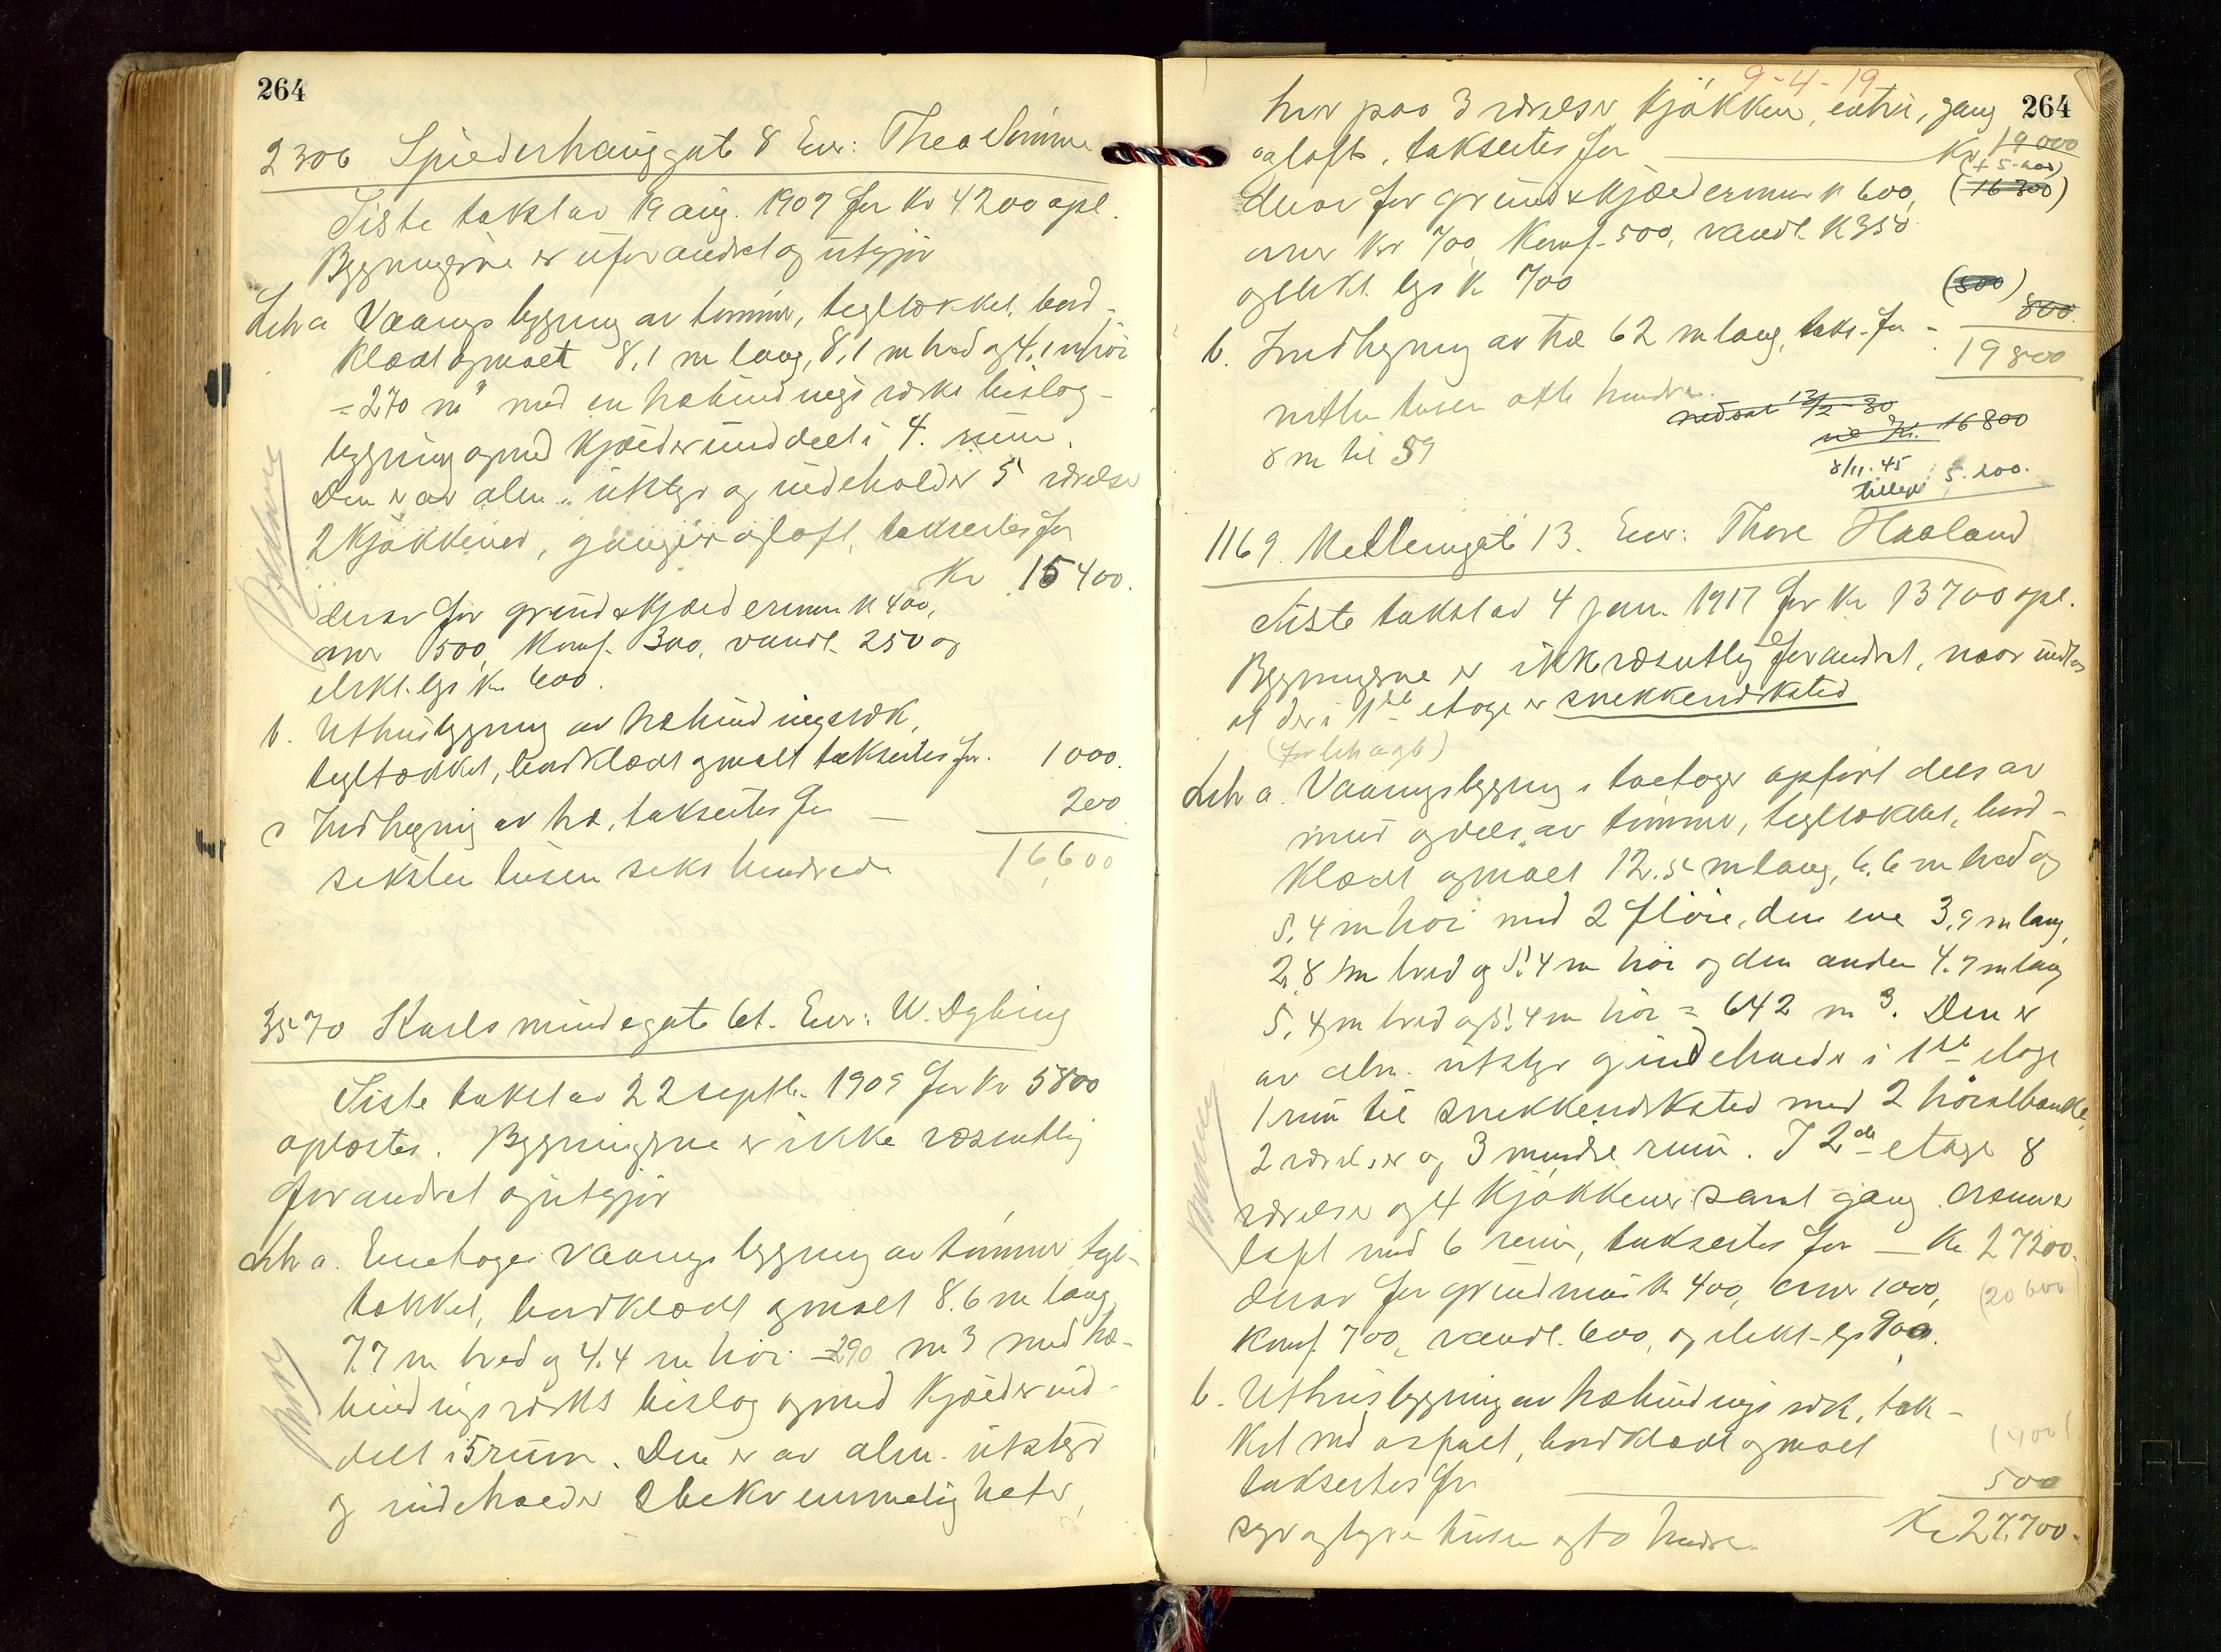 264
2306 Spilderhauggate 8 Eier: Thea Simme
Siste takst av 19 aug. 1907 for Kr 4200 opl.
Bygningerne er uforandret og utgjør
Litr a Vaaningsbygning av tømmer, tegltækket, bord-
klædt og malt 8,1 m lang, 8,1 m bred og 4,1 m høi
= 270 m³ med en utbindingsverks bislag-
bygning og med kjælder inddelt i 4 rum.
Den er av alm. utstyr og indeholder 5 værelser
2 kjøkkener, ganger og loft, takseres for
Kr 15400.
derav for grund & kjældermur kr 400,
ovner 500, komf. 300, vandl. 250 og
elekt. lys kr 600.
b. Uthusbygning av utbindingsverk,
tegltækket, bordklædt og malt takseres for. 1000.
c Indhegning av træ, takseres for — 200
seksten tusen seks hundrede 16,600
3570 Karlsmindegate 61. Eier: W. Dybing
Siste takst av 22 septb. 1909 for Kr 5800
oplæstes. Bygningerne er ikke væsentlig
forandret og utgjør
Litr a. Enetages vaaningsbygning av tømmer, tegl-
tækket, bordklædt og malt 8.6 m lang,
7.7 m bred og 4.4 m høi = 290 m3 med ut-
bindingsverks bislag og med kjælder ind-
delt i 5 rum. Den er av alm. utstyr
og indeholder 2 bekvemmeligheter,
9-4-19
264
hver paa 3 værelser, kjøkken, entre, gang
og loft, takseres for — Kr 19000
(+ 5-)
(16300)
derav for grund & kjældermur kr 600,
ovner kr 700, komf. 500, vandl. kr 350
og elekt. lys kr 700
(500)
b. Indhegning av træ 62 m lang, taks. for - 800
19800
nitten tusen otte hundre.
nedsat 12/2-30
til Kr. 16800
8 m til 59
8/11.45
tillegg 5.200.
1169. Møllergate 13. Eier: Thore Haaland
Siste takst av 4 jan. 1917 for Kr 13700 opl.
Bygningerne er ikke væsentlig forandret, naar undtas
at der i 1ste etage er snekkerverksted
(for litr a & b)
Litr a. Vaaningsbygning i to etager opført dels av
mur og dels av tømmer, tegltækket, bord-
klædt og malt 12.5 m lang, 6.6 m bred og
5.4 m høi med 2 fløie, den ene 3.9 m lang,
2.8 m bred og 5.4 m høi og den anden 4.7 m lang
5.4 m bred og 5.4 m høi = 642 m3. Den er
av alm. utstyr og indeholder i 1ste etage
1 rum til snekkerverksted med 2 høvelbænke,
2 værelser og 3 mindre rum. I 2de etage 8
værelser og 4 kjøkkener samt gang.
loft med 6 rum, takseres for — Kr 27200.
derav for grundmur kr 400, ovner 1000, (20600)
komf. 700, vandl. 600, og elekt. lys 900.
b. Uthusbygning av utbindingsverk, tæk-
ket med asfalt, bordklædt og malt (400)
takseres for — 500
syv og tyve tusen og to hundre. Kr 27.700.